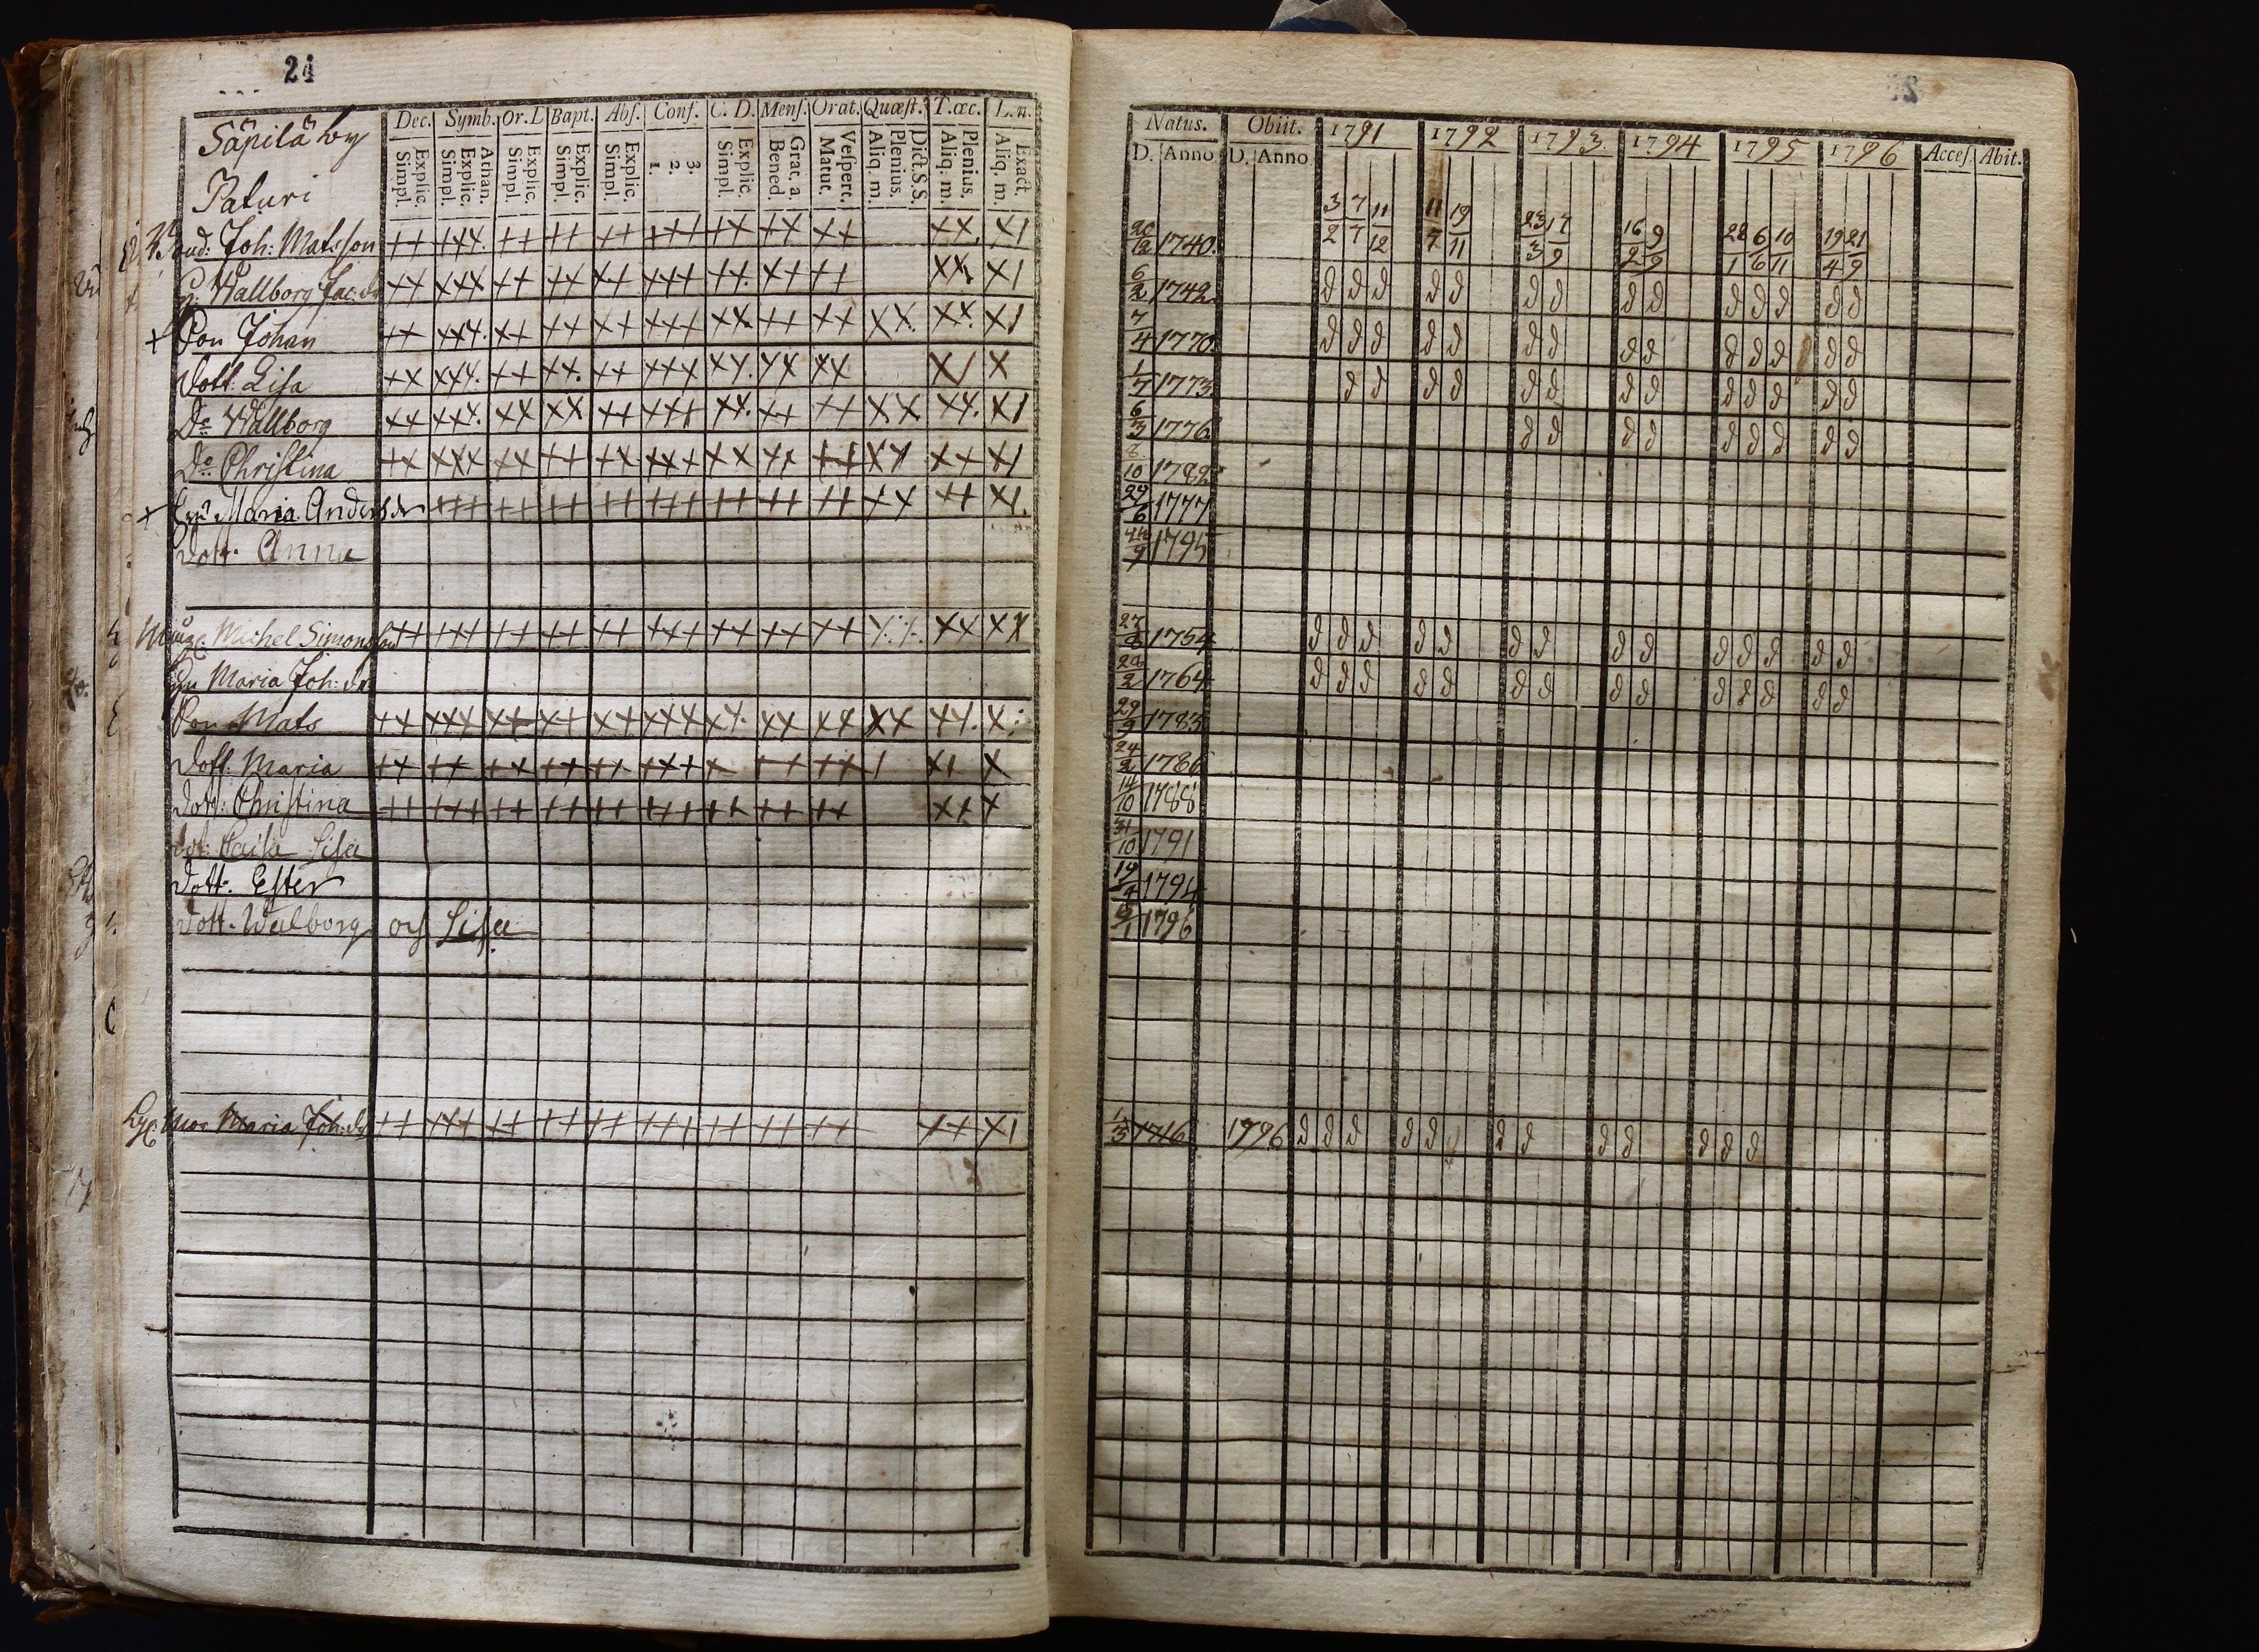 24
Säpilä by
Paturi
Dec. Symb. Or. D. Bapt. Abs. Conf. C. D. Mens. Orat. Quæst. T. œc. L. n.
Explic. Simpl. Athan. Explic. Simpl. Explic. Simpl. Explic. Simpl. Explic. Simpl. 3. 2. 1. Explic. Simpl. Grat. a. Bened. Vespert. Matut. Dict. S. S. Plenius. Aliq. m. Plenius. Aliq. m. Exact. Aliq. m.
Natus. Obiit. 1791 1792 1793. 1794 1795 1796 Acces. Abit.
D. Anno D. Anno
3/2 7/7 11/12 11/7 19/11 23/3 17/9 16/2 9/9 28/1 6/6 10/11 19/4 21/9
Joh: Matsson ++ +++ ++ ++ ++ +++ ++ ++ ++ ++ +/ 1740.
H. Wallborg Jac:dr ++ +++ ++ ++ ++ +++ ++ ++ ++ ++ +/ 6/2 1742 d d d d d d d d d d d d d d
+ Son Johan ++ +++ ++ ++ ++ +++ ++ ++ ++ ++ ++ +/ 7/4 1770 d d d d d d d d d d d d d d
Dott: Lisa ++ +++ ++ ++ ++ +++ ++ ++ ++ +/ + 1/7 1773 d d d d d d d d d d d d d
Do Wallborg ++ +++ ++ ++ ++ +++ ++ ++ ++ ++ ++ +/ 6/3 1776 d d d d d d d d d
Do Christina ++ +++ ++ ++ ++ +++ ++ ++ ++ ++ ++ +/ 8/10 1782
+ Maria Anders dr +++ ++ ++ ++ +++ ++ ++ ++ ++ ++ +/ 29/6 1777
Dott. Anna 1795
Michel Simonsson ++ +++ ++ ++ ++ +++ ++ ++ ++ ++ ++ ++ 1754 d d d d d d d d d d d d d d
Maria Joh:dr 28/2 1764 d d d d d d d d d d d d d d
Son Mats ++ +++ ++ ++ ++ +++ ++ ++ ++ ++ ++ + 29/9 1783
Dott. Maria ++ ++ ++ ++ ++ +++ + ++ ++ / +/ + 24/2 1786
Dott: Christina ++ +++ ++ ++ ++ +++ ++ ++ ++ ++ + 14/10 1788
Lisa 31/10 1791
Dott. Ester 19/4 1794
Dott. Walborg och Lisa 1796
Mor Maria Joh:dr ++ +++ ++ ++ ++ +++ ++ ++ ++ ++ +/ 1/3 1716 1796 d d d d d d d d d d d d